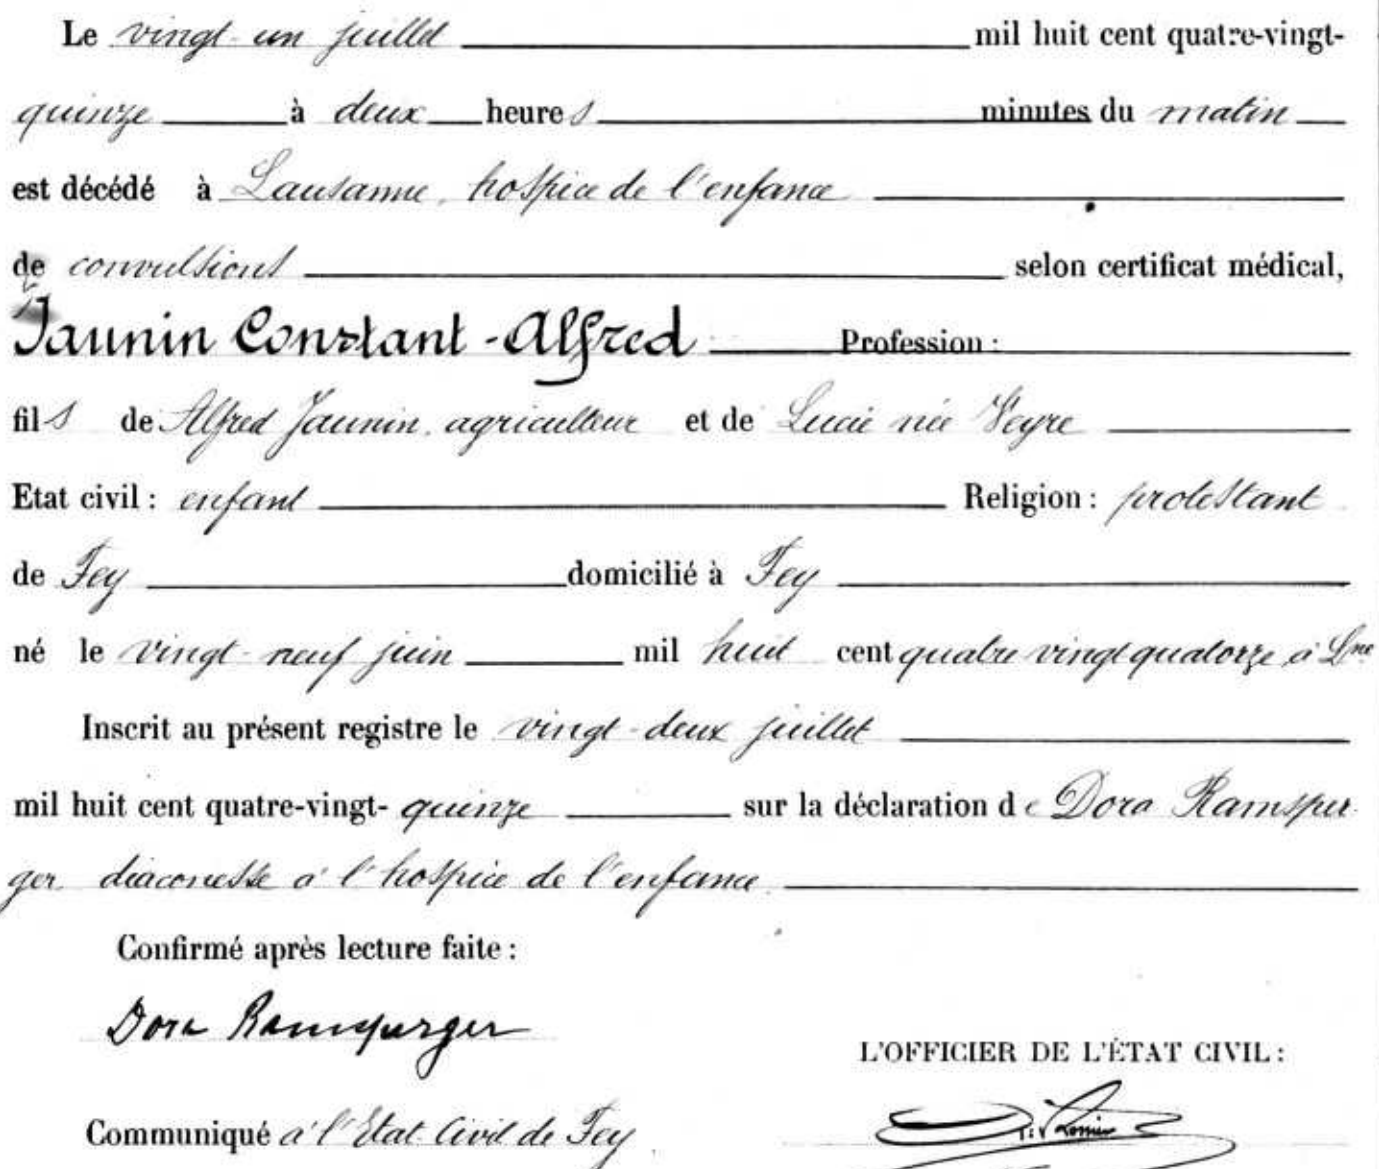 Le vingt-un juillet mil huit cent quatre-vingt-
quinze à deux heures minutes du matin
est décédé à Lausanne, hospice de l'enfance
de convulsions selon certificat médical,
Jaunin Constant-Alfred Profession :
fils de Alfred Jaunin, agriculteur et de Lucie née Veyre
Etat civil : enfant Religion : protestant
de Fey domicilié à Fey
né le vingt-neuf juin mil huit cent quatre vingt quatorze à Lne
Inscrit au présent registre le vingt-deux juillet
mil huit cent quatre-vingt- quinze sur la déclaration de Dora Ramsper-
ger diaconesse à l'hospice de l'enfance.
Confirmé après lecture faite :
Dora Ramsperger
L'OFFICIER DE L'ÉTAT CIVIL :
Communiqué à l'Etat Civil de Fey